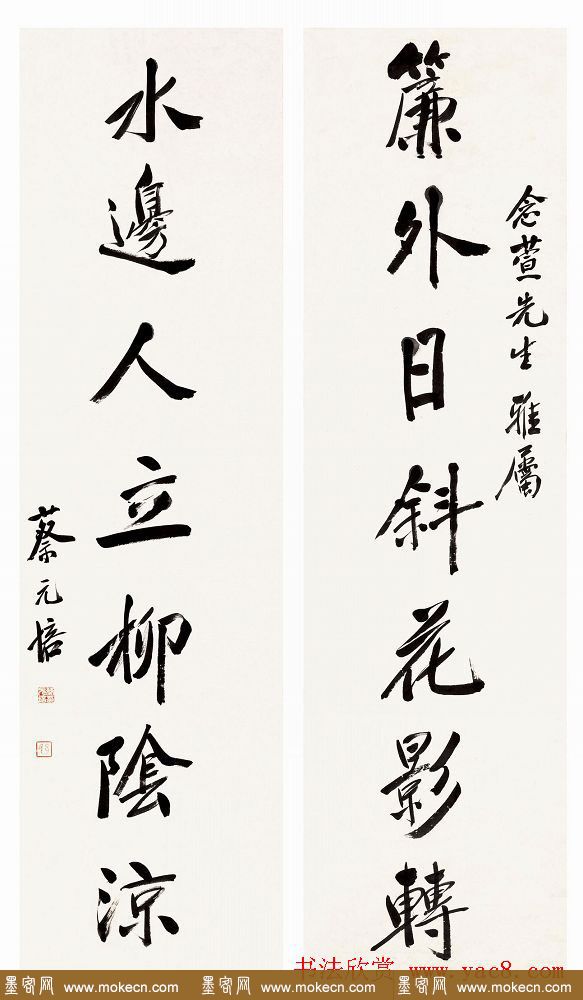 念萱先生雅屬
簾外日斜花影轉
水邊人立柳陰涼
蔡元培
书法欣赏 www.yac8.com
墨客网 www.mokecn.com 墨客网 www.mokecn.com 墨客网 www.mokecn.com 墨客网 www.mokecn.com